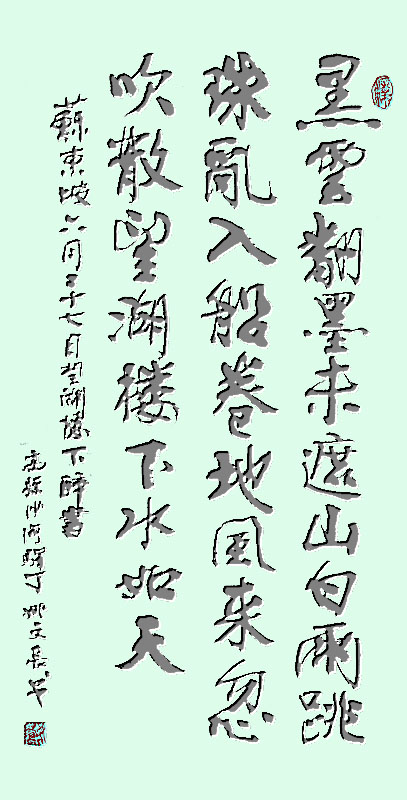 黑雲翻墨未遮山白雨跳
珠亂入船卷地風来忽
吹散望湖樓下水如天
蘇東坡六月二十七日望湖樓下醉書
沙河驛丁姚文長书